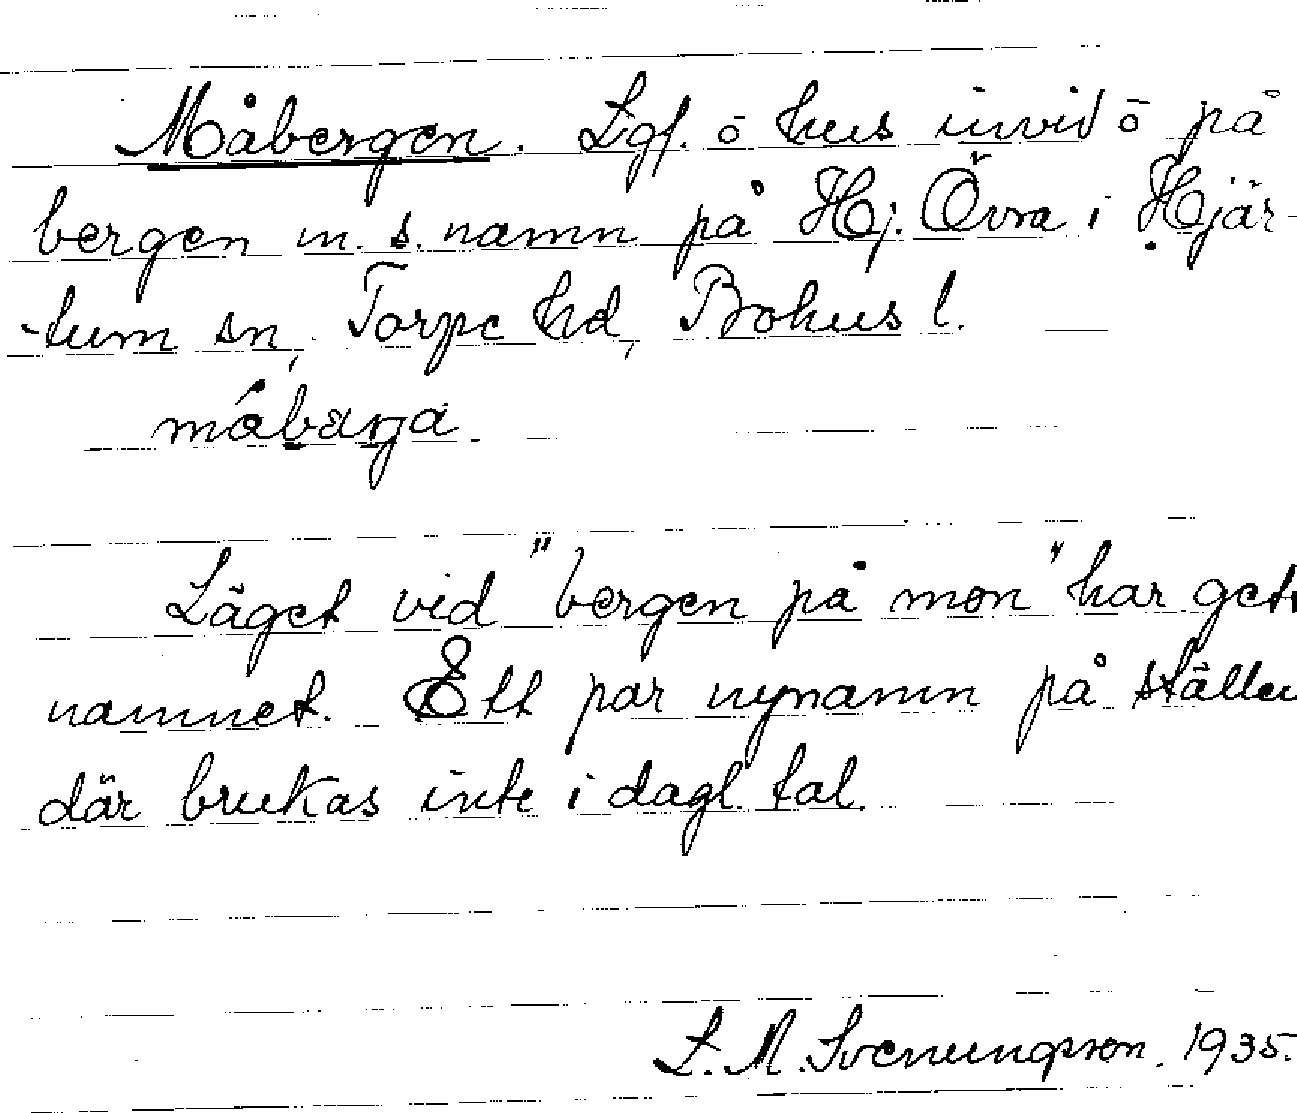 Måbergen. Lgf. o hus invid o på
bergen m. s. namn på Hj. Övra i Hjär-
-tum sn, Torpe hd, Bohus l.
måbærja.
Läget vid "bergen på mon" har gett
namnet. Ett par nynamn på ställen
där brukas inte i dagl. tal.
L. M. Svenungsson. 1935.